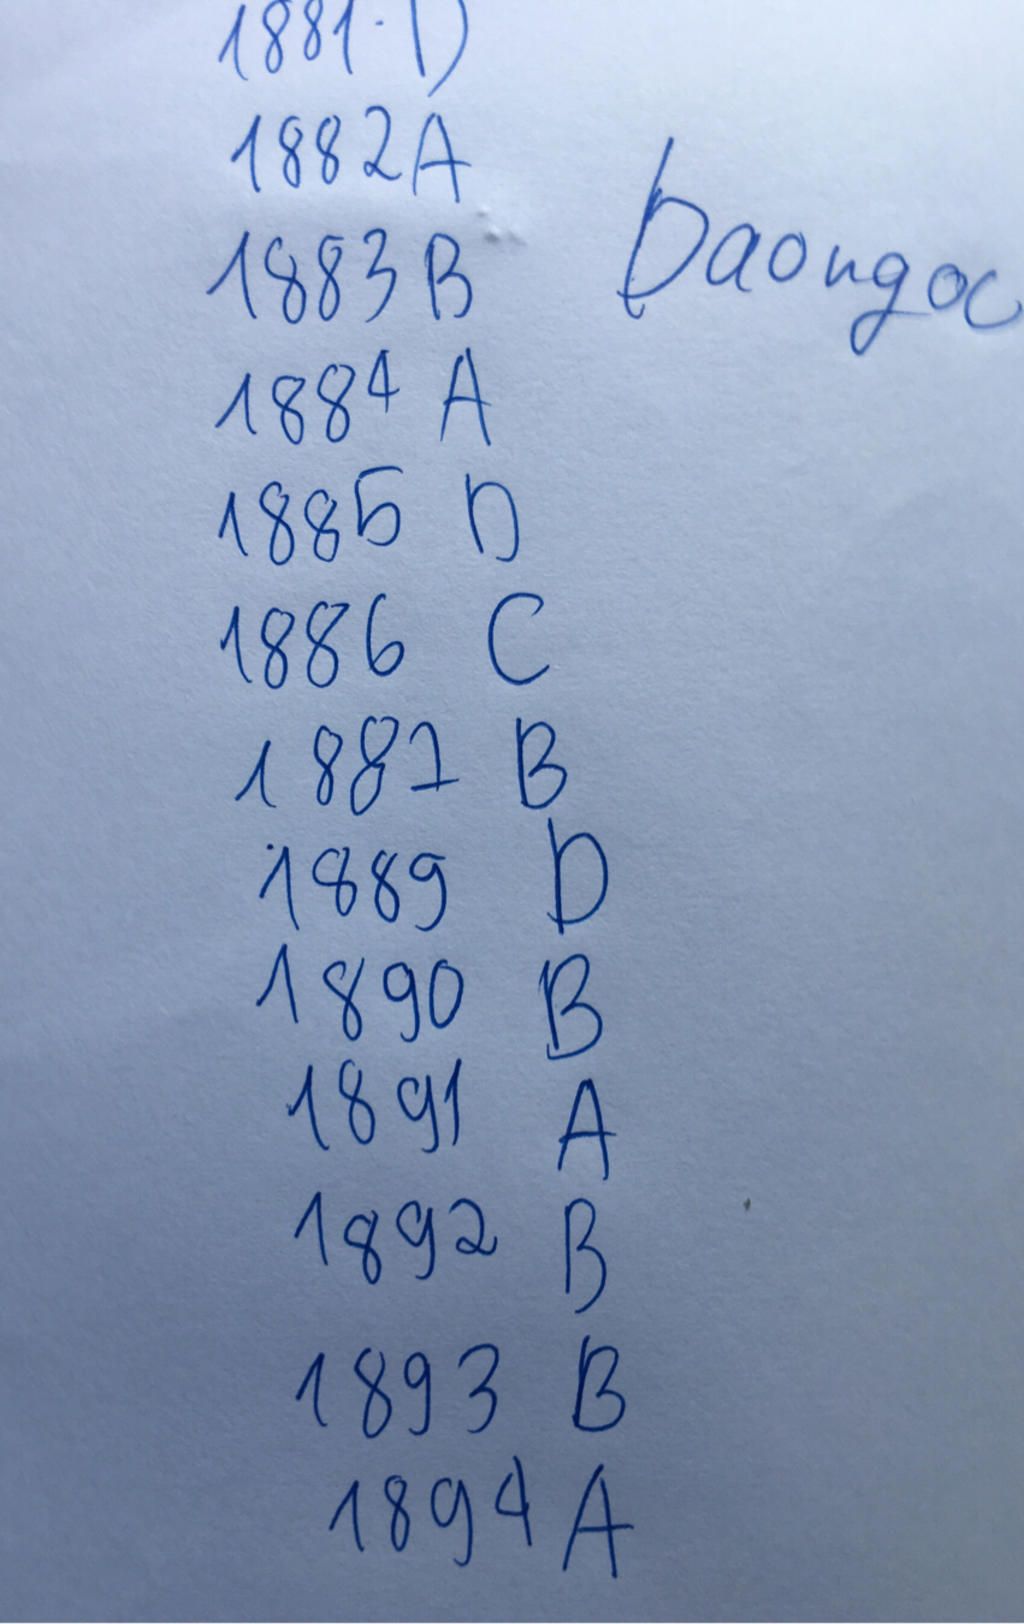 1881. D
1882 A
1883 B
Daongoc
1884 A
1885 D
1886 C
1887 B
1889 D
1890 B
1891 A
1892 B
1893 B
1894 A